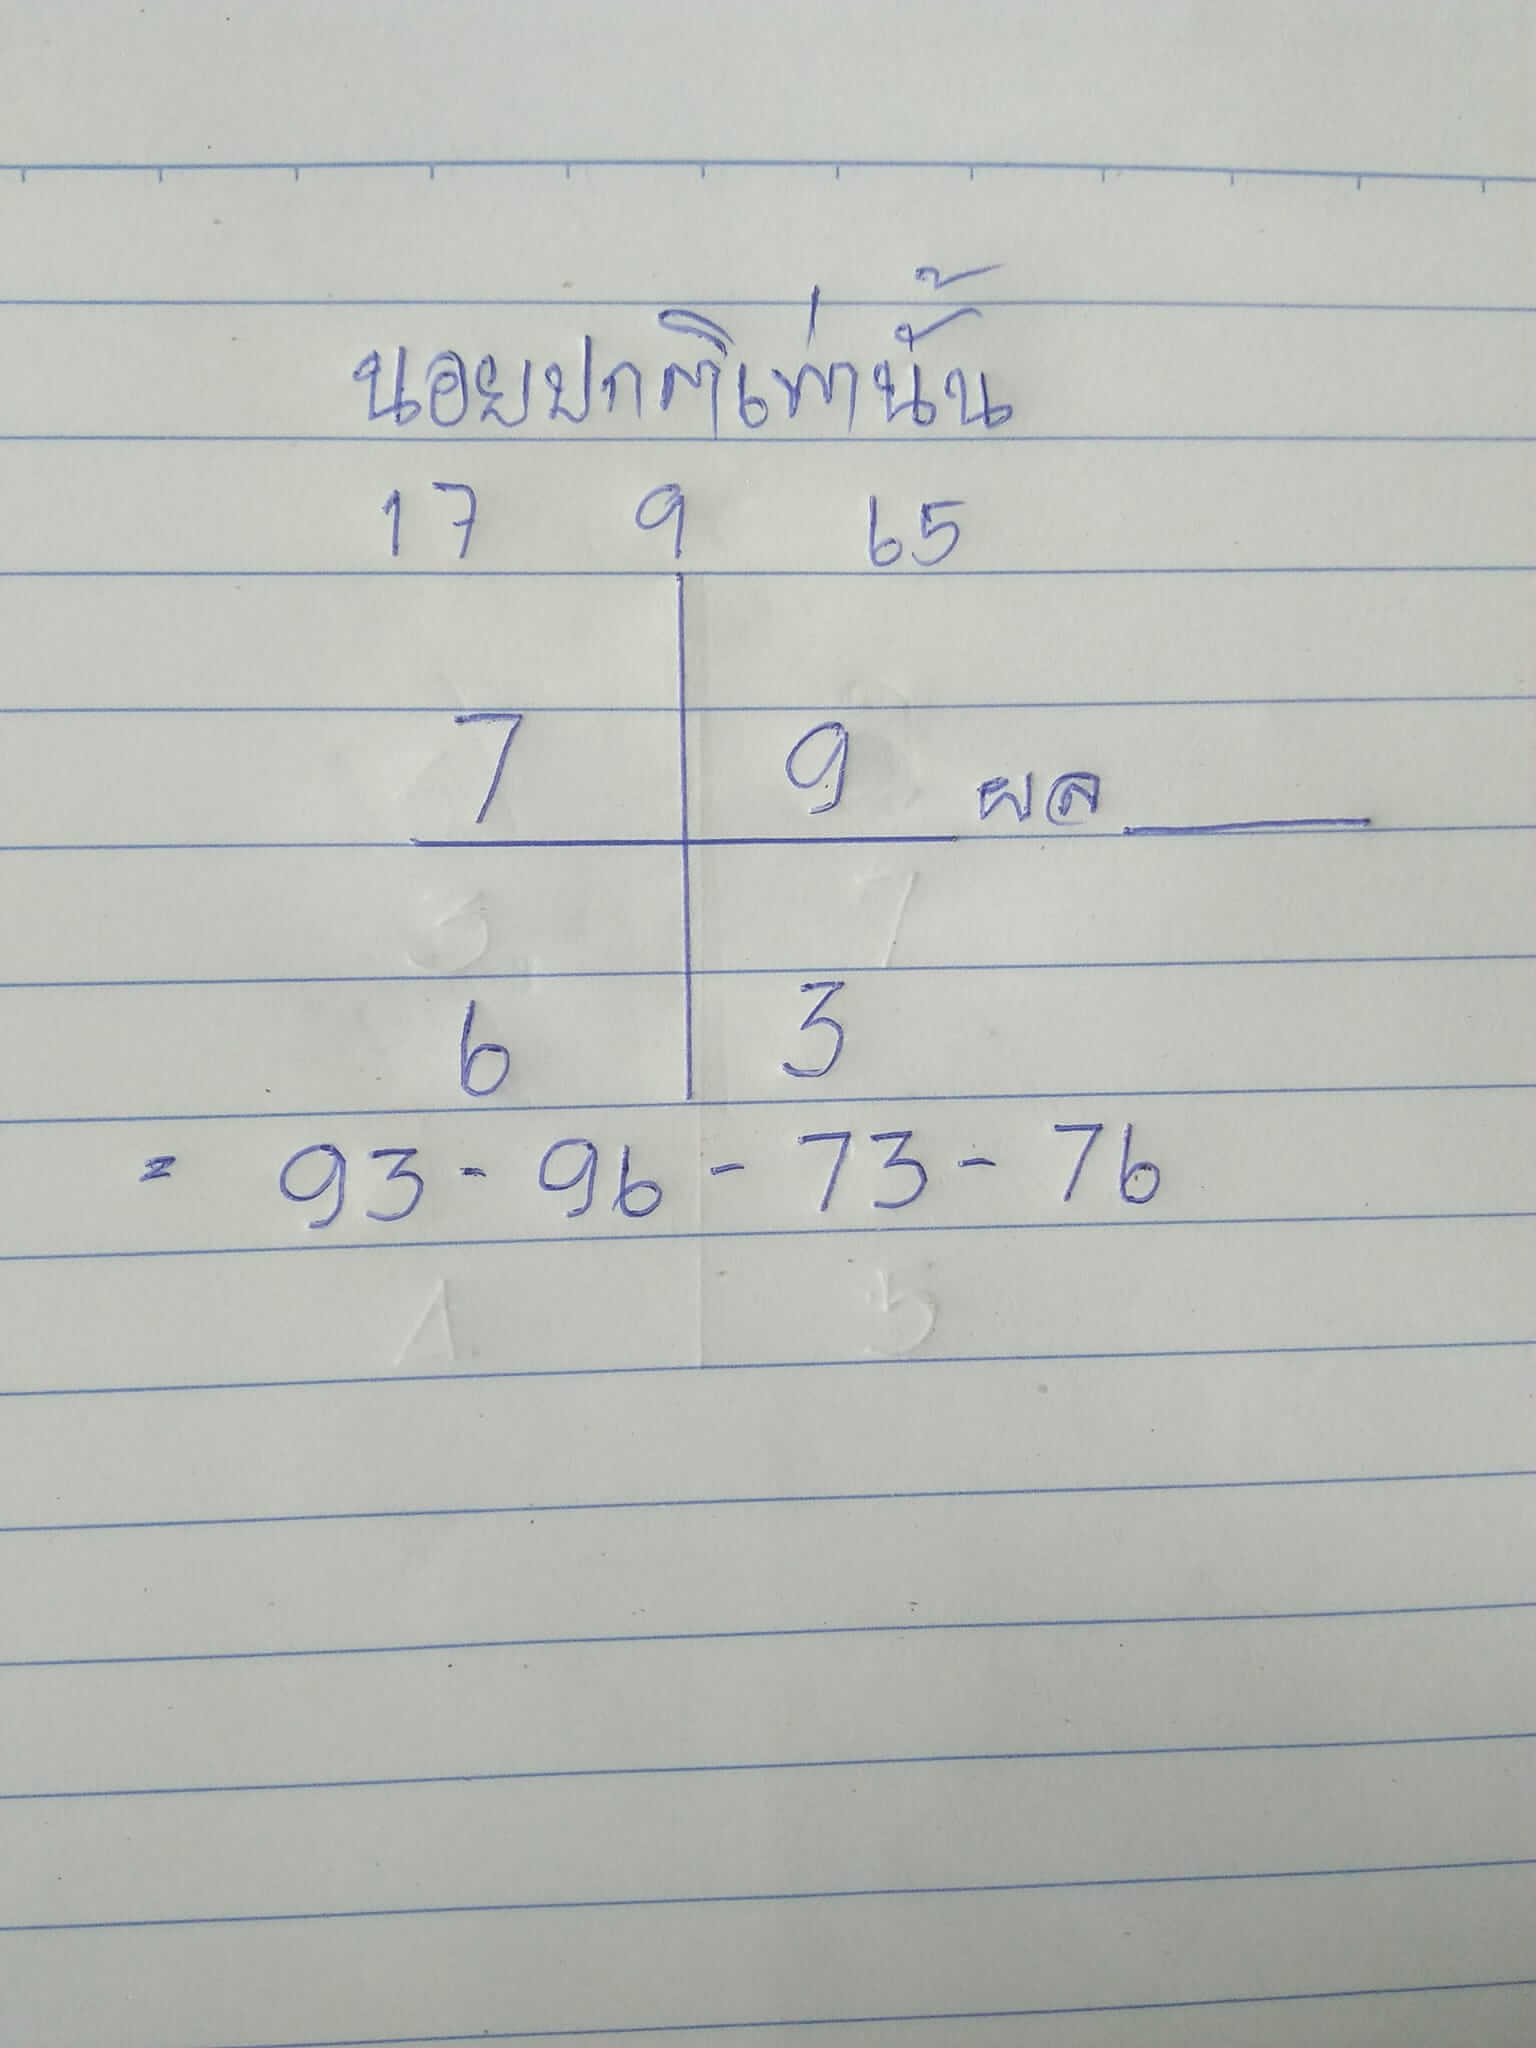 นอยปกติเท่านั้น
17 9 65
7 9 ผล
6 3
= 93 - 96 - 73 - 76